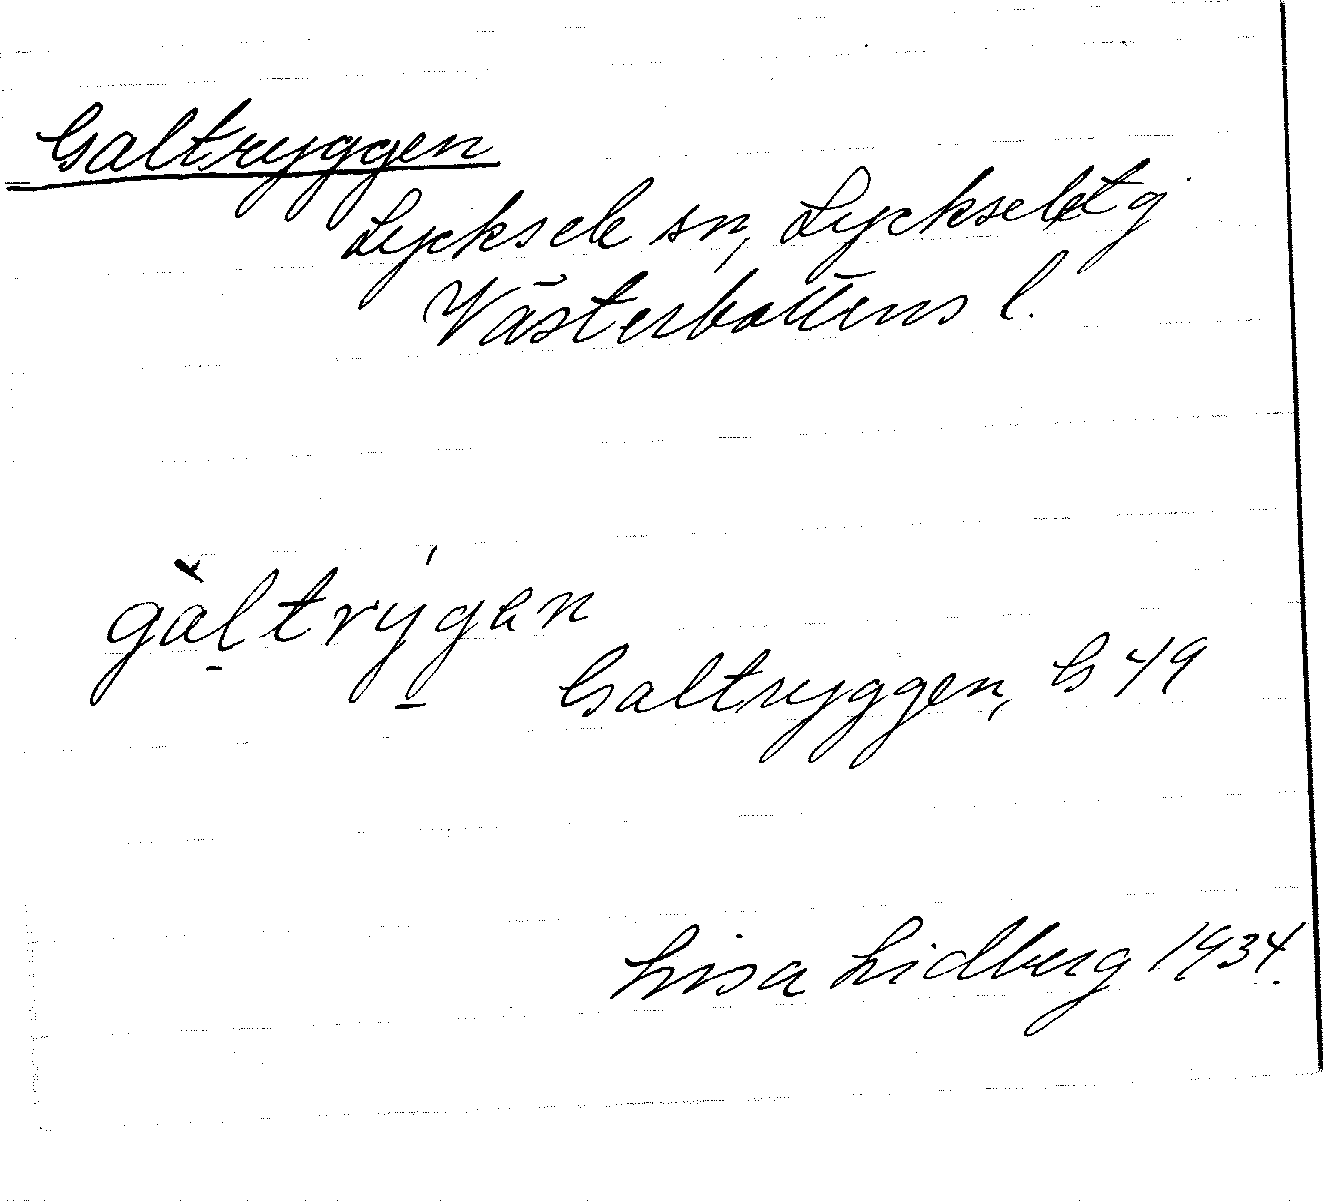 Galtryggen
Lycksele sn, Lycksele tg
Västerbottens l.
gàltrýgen
Galtryggen, G 49
Lisa Lidberg 1934.